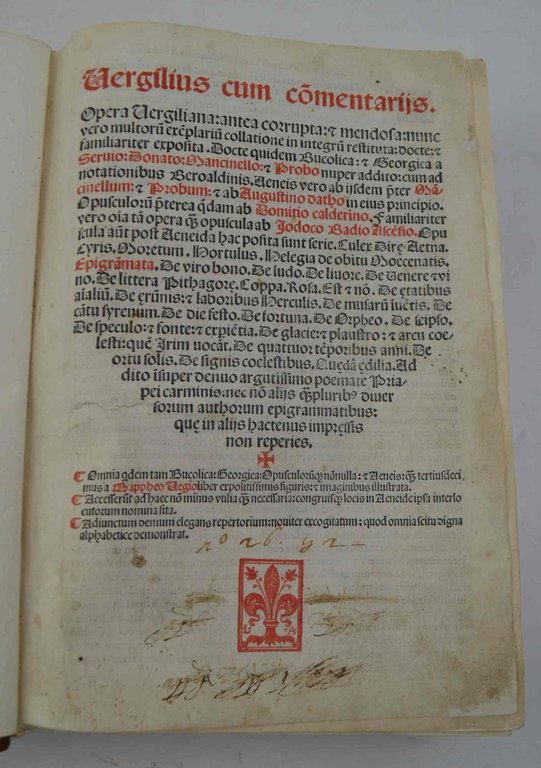 Uergilius cum cõmentarijs.
Opera Uergiliana: antea corrupta: ⁊ mendosa: nunc
vero multorũ exẽplariũ collatione in integrũ restituta: docte: ⁊
familiariter exposita. Docte quidem Bucolica: ⁊ Georgica a
Seruio: Donato: Mancinello: ⁊ Probo nuper addito: cum ad
notationibus Beroaldinis. Aeneis vero ab ijsdem p̃ter Mã
cinellum: ⁊ Probum: ⁊ ab Augustino datho in eius principio.
Opusculorũ p̃terea q̃dam ab Domitio calderino. Familiariter
vero oĩa tã opera q̃ opuscula ab Jodoco Badio Ascẽsio. Opu
scula aũt post Aeneida hac posita sunt serie. Culex Dirę. Aetna.
Cyris. Moretum. Hortulus. Helegia de obitu Moecenatis.
Epigrãmata. De viro bono. De ludo. De liuore. De Uenere ⁊ vi
no. De littera Pithagorę. Coppa. Rosa. Est ⁊ nõ. De ętatibus
aĩaliũ. De ęrũnis: ⁊ laboribus Herculis. De musarũ iuẽtis. De
cãtu syrenum. De die festo. De fortuna. De Orpheo. De seipso.
De speculo: ⁊ fonte: ⁊ expiẽtia. De glacie: ⁊ plaustro: ⁊ arcu coe-
lesti: quẽ Irim uocãt. De quattuor tẽporibus anni. De
ortu solis. De signis coelestibus. Quędã ędilia. Ad
dito ĩsuper denuo argutissimo poemate Pria-
pei carminis: nec nõ alijs q̃plurib⁹ diuer
sorum authorum epigrammatibus:
quę in alijs hactenus imp̃ssis
non reperies.
¶ Omnia q̃dem tam Bucolica: Georgica: Opusculorũq̃ nõnulla: ⁊ Aeneis: q̃ tertiusdeci
mus a Mappheo Uegio liber expolitissimis figuris: ⁊ imaginibus illustrata.
¶ Accesserũt ad haec nõ minus vtilia q̃ necessaria: congruisq̃ locis in Aeneide ipsa interlo
cutorum nomina sita.
¶ Adiunctum demum elegans repertorium: nouiter excogitatum: quod omnia scitu digna
alphabetice demonstrat.
nº 26. 92 –
L A